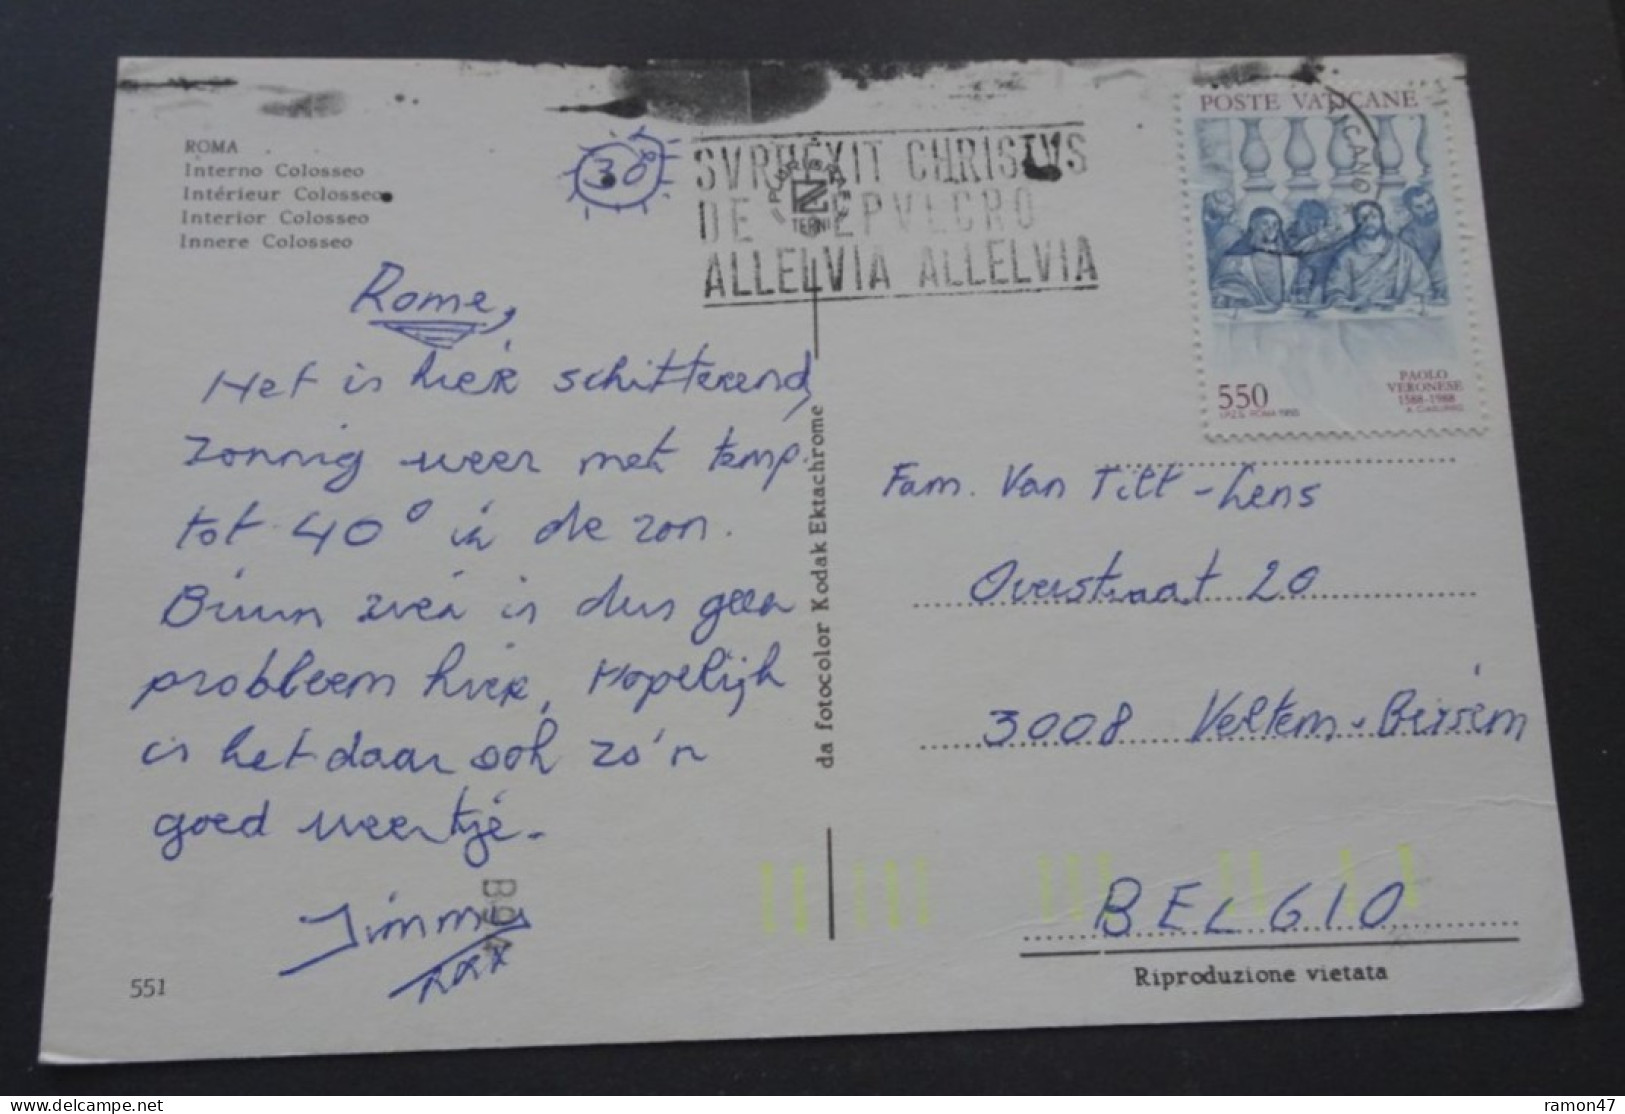 ROMA
Interno Colosseo
Intérieur Colosseo
Interior Colosseo
Innere Colosseo
30°
SVRREXIT CHRISTVS
DE SEPVLCRO
ALLELVIA ALLELVIA
TERNI
POSTE VATICANE
550
PAOLO
VERONESE
1588-1988
Rome,
Het is hier schitterend
zonnig weer met temp.
tot 40° in de zon.
Bruin zien is dus geen
probleem hier, Hopelijk
is het daar ook zo'n
goed weertje.
Jimmy
xxx
B94
551
da fotocolor Kodak Ektachrome
Fam. Van Tilt-Lens
Overstraat 20
3008 Veltem-Beisem
BELGIO
Riproduzione vietata
ramon47